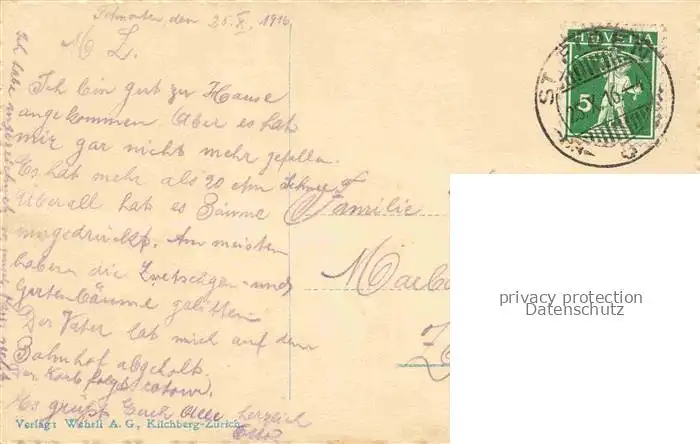 den 25.X.1916
M. L.
Ich bin gut zu Hause
angekommen. Aber es hat
mir gar nicht mehr gefallen.
Es hat mehr als 20 ctm Schnee
Überall hat es Bäume
umgedrückt. Am meisten
haben die Zwetschgen- und
Gartenbäume gelitten.
Der Vater hat mich auf dem
Bahnhof abgeholt.
Korb folgt retour.
Es grüsst Euch Alle herzlich
Verlag: Wehrli A. G., Kilchberg-Zürich.
HELVETIA
5
ST.
Familie
privacy protection
Datenschutz